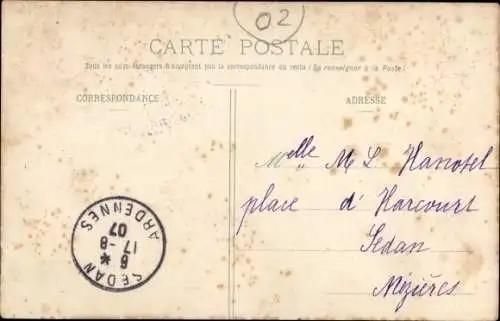 02
CARTE POSTALE
Tous les pays étrangers n'acceptent pas la correspondance au recto (Se renseigner à la Poste)
CORRESPONDANCE
ADRESSE
Melle M L Hanotel
place d'Harcourt
Sedan
Mézières
SEDAN
6 *
17-8
07
ARDENNES